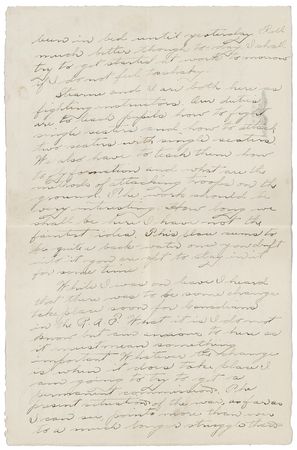 been in bed until yesterday. Feel
much better though to-day & shall
try to get started at work to-morrow
if I do not feel too shaky.
and I are both here as
fighting instructors. Our duties
are to teach pupils how to fight
single seaters and how to attack
two seaters with single seaters.
We also have to teach them how
to fly formation and what are the
methods of attacking troops on the
ground. The work should be
very interesting. How long we
shall be here I have not the
faintest idea. This place seems to
be quite a back-water once you drift
into it you are apt to stay in it
for some time.
While I was on leave I heard
that there was to be some change
take place soon for Canadians
in the R.A.F. What it is I do not
know but am anxious to hear as
it must mean something
important. Whatever the change
is when it does take place I
am going to try to get a
permanent commission. The
present situation of the war, as far as
I can see points more than ever
to a much longer struggle than